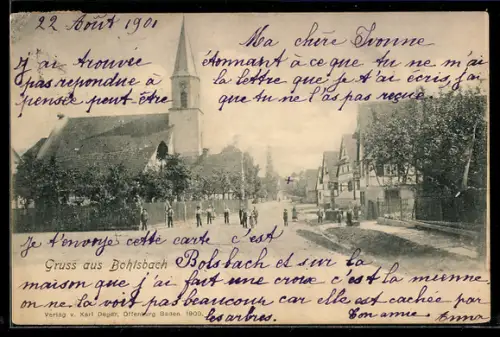 22 Août 1901
Ma chère Yvonne
J'ai trouvée étonnant à ce que tu ne m'ai
pas repondue à la lettre que je t'ai écris, j'ai
pensée peut être que tu ne l'as pas reçue.
Je t'envoye cette carte c'est
Gruss aus Bohlsbach
Bolsbach et sur la
maison que j'ai fait une croix c'est la mienne
on ne la voit pas beaucoup car elle est cachée par
les arbres. Ton amie Anna
Verlag v. Karl Geyer, Offenburg Baden 1900.